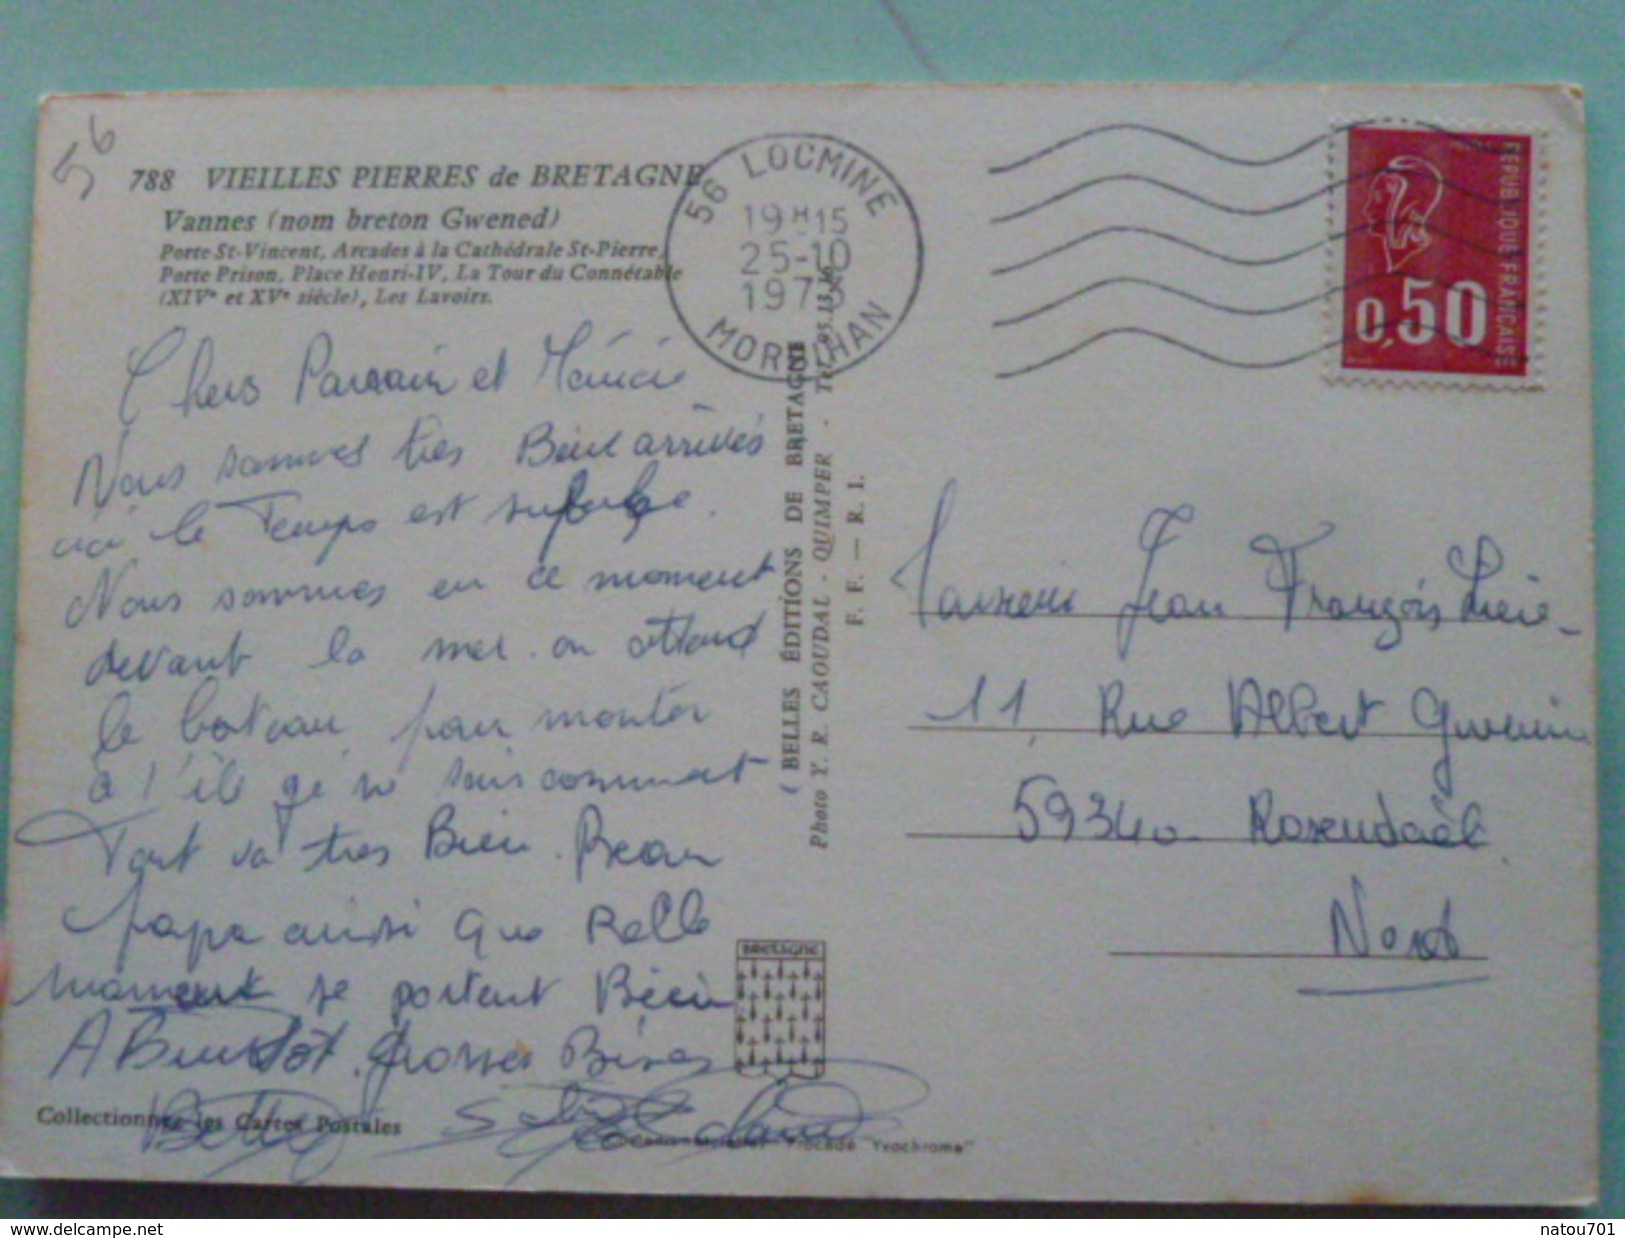 56
788 VIEILLES PIERRES de BRETAGNE
Vannes (nom breton Gwened)
Porte St-Vincent, Arcades à la Cathédrale St-Pierre,
Porte Prison, Place Henri-IV, La Tour du Connétable
(XIVe et XVe siècle), Les Lavoirs.
Chers Parrain et
Nous sommes très Bien arrivés
ici le Temps est superbe.
Nous sommes en ce moment
devant la mer. on attend
le bateau pour monter
à l'île qe ne sais comment
Tout va très Bien. Beau
papa ainsi que Belle
maman se portent Bien
A Bientôt. Grosses Bises
Betty
Collectionnez les Cartes Postales
56 LOCMINE
19H15
25-10
197
MORBIHAN
BELLES ÉDITIONS DE BRETAGNE
Photo Y. R. CAOUDAL - QUIMPER - Tél. 95.13.
F. F. — R. I.
BRETAGNE
Procédé "Yvochrome"
REPUBLIQUE FRANÇAISE
0,50
Jean François
11 Rue Albert
59340 Rosendaël
Nord
delcampe.net
natou701